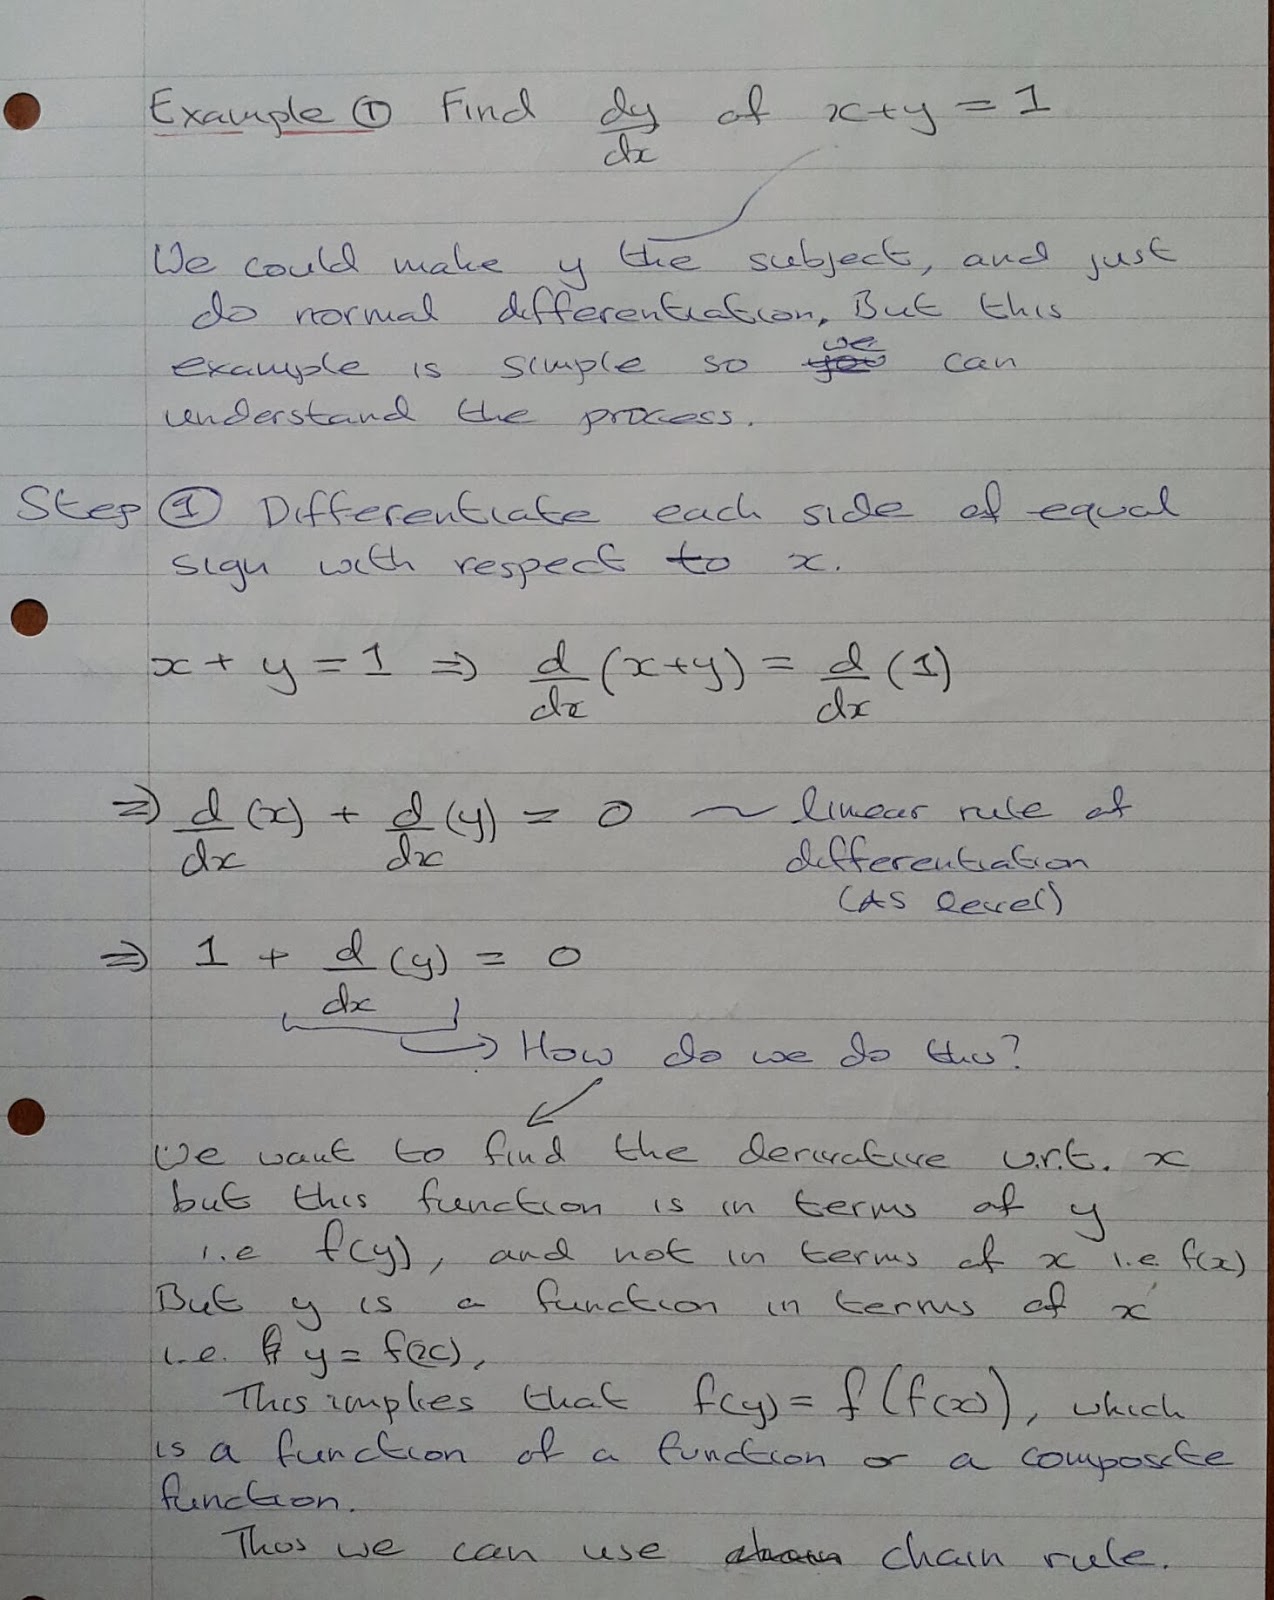 Example ① Find dy/dx of x+y = 1
We could make y the subject, and just
do normal differentiation. But this
example is simple so we can
understand the process.
Step ① Differentiate each side of equal
sign with respect to x.
x + y = 1 ⇒ d/dx (x+y) = d/dx (1)
⇒ d/dx (x) + d/dx (y) = 0 ~ linear rule of
differentiation
(AS level)
⇒ 1 + d/dx (y) = 0
→ How do we do this?
We want to find the derivative w.r.t. x
but this function is in terms of y
i.e f(y), and not in terms of x i.e f(x)
But y is a function in terms of x
i.e. y = f(x),
This implies that f(y) = f(f(x)), which
is a function of a function or a composite
function.
Thus we can use chain rule.